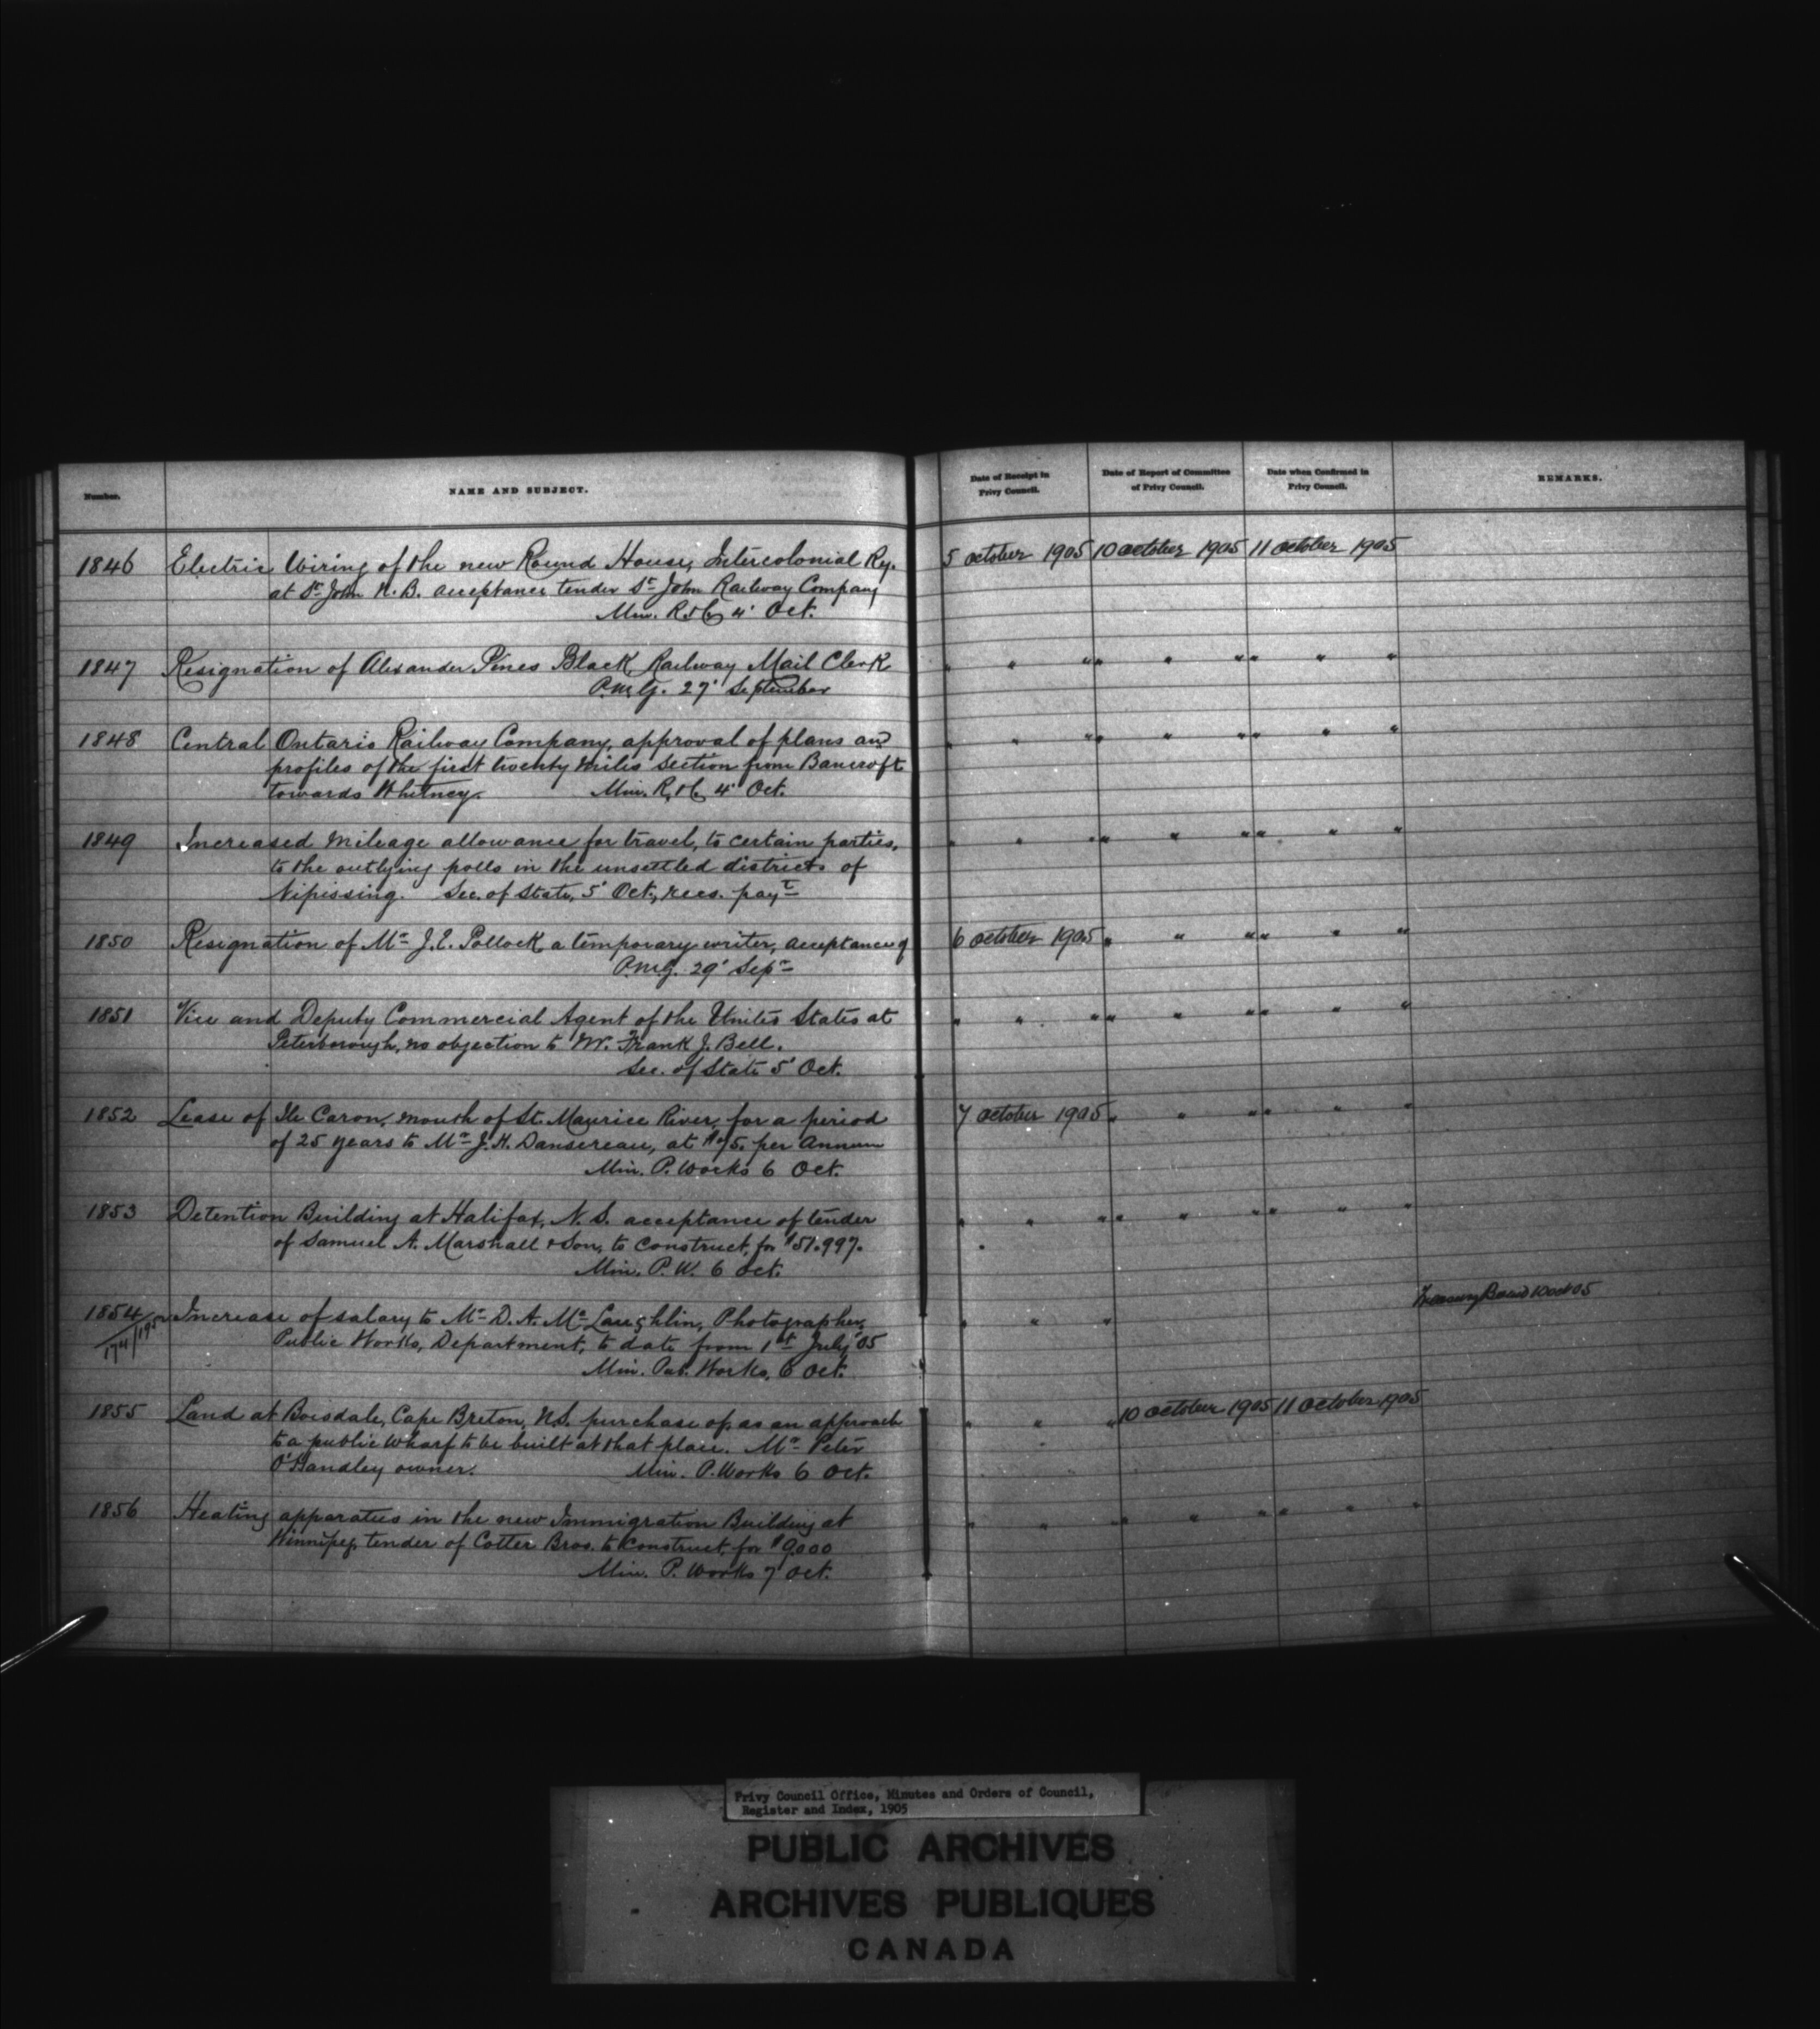 Number.
NAME AND SUBJECT.
Date of Receipt in Privy Council.
Date of Report of Committee of Privy Council.
Date when Confirmed in Privy Council.
REMARKS.
1846 Electric Wiring of the new Round House, Intercolonial Ry. 5 October 1905 10 October 1905 11 October 1905
at St. John N.B. acceptance tender St. John Railway Company
Min. R. & C. 4' Oct.
1847 Resignation of Alexander Pines Black Railway Mail Clerk " " " " " " " " "
P.M.G. 27' September
1848 Central Ontario Railway Company, approval of plans and " " " " " " " " "
profiles of the first twenty miles section from Bancroft
towards Whitney. Min. R. & C. 4' Oct.
1849 Increased mileage allowance for travel, to certain parties, " " " " " " " " "
to the outlying polls in the unsettled districts of
Nipissing. Sec. of State, 5' Oct, recs. payt
1850 Resignation of Mr J.E. Pollock a temporary writer, acceptance of 6 October 1905 " " " " " "
P.M.G. 29' Sepr
1851 Vice and Deputy Commercial Agent of the United States at " " " " " " " " "
Peterborough, no objection to W. Frank J. Bell.
Sec. of State 5' Oct.
1852 Lease of Ile Caron, mouth of St. Maurice River, for a period 7 October 1905 " " " " " "
of 25 years to Mr J.H. Dansereau, at $75. per Annum
Min. P. Works 6 Oct.
1853 Detention Building at Halifax, N.S. acceptance of tender " " " " " " " " "
of Samuel A. Marshall & Son, to construct, for $51.997.
Min. P.W. 6 Oct.
1854 Increase of salary to Mr D.A. McLaughlin, Photographer, " " " Treasury Board 10 Oct 05
Public Works, Department, to date from 1st July '05
Min. Pub. Works, 6 Oct.
1855 Land at Boisdale, Cape Breton, N.S. purchase of, as an approach " " " 10 October 1905 11 October 1905
to a public Wharf to be built at that place. Mr Peter
O'Handley owner. Min. P. Works 6 Oct.
1856 Heating apparatus in the new Immigration Building at " " " " " " " " "
Winnipeg, tender of Cotter Bros. to construct, for $9,000
Min. P. Works 7 Oct.
Privy Council Office, Minutes and Orders of Council,
Register and Index, 1905
PUBLIC ARCHIVES
ARCHIVES PUBLIQUES
CANADA